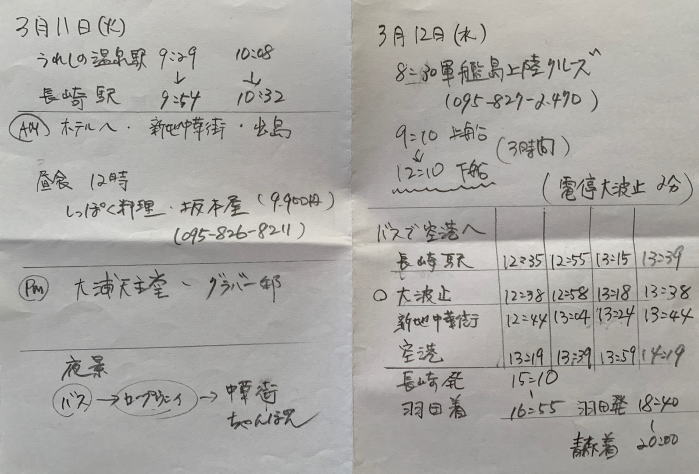 3月11日(火)
うれしの温泉駅 9:29 10:08
↓ ↓
長崎駅 9:54 10:32
AM ホテルへ・新地中華街・出島
昼食 12時
しっぽく料理・坂本屋(9.900円)
(095-826-8211)
PM 大浦天主堂~グラバー邸
夜景
バス→ロープウェイ→中華街
ちゃんぽん
3月12日(水)
8:30軍艦島上陸クルーズ
(095-827-2470)
9:10 上船
(3時間)
12:10 下船
(電停大波止 2分)
バスで空港へ
長崎駅 12:35 12:55 13:15 13:39
○ 大波止 12:38 12:58 13:18 13:38
新地中華街 12:44 13:04 13:24 13:44
空港 13:19 13:39 13:59 14:19
長崎発 15:10
羽田着 16:55 羽田発 18:40
青森着 20:00